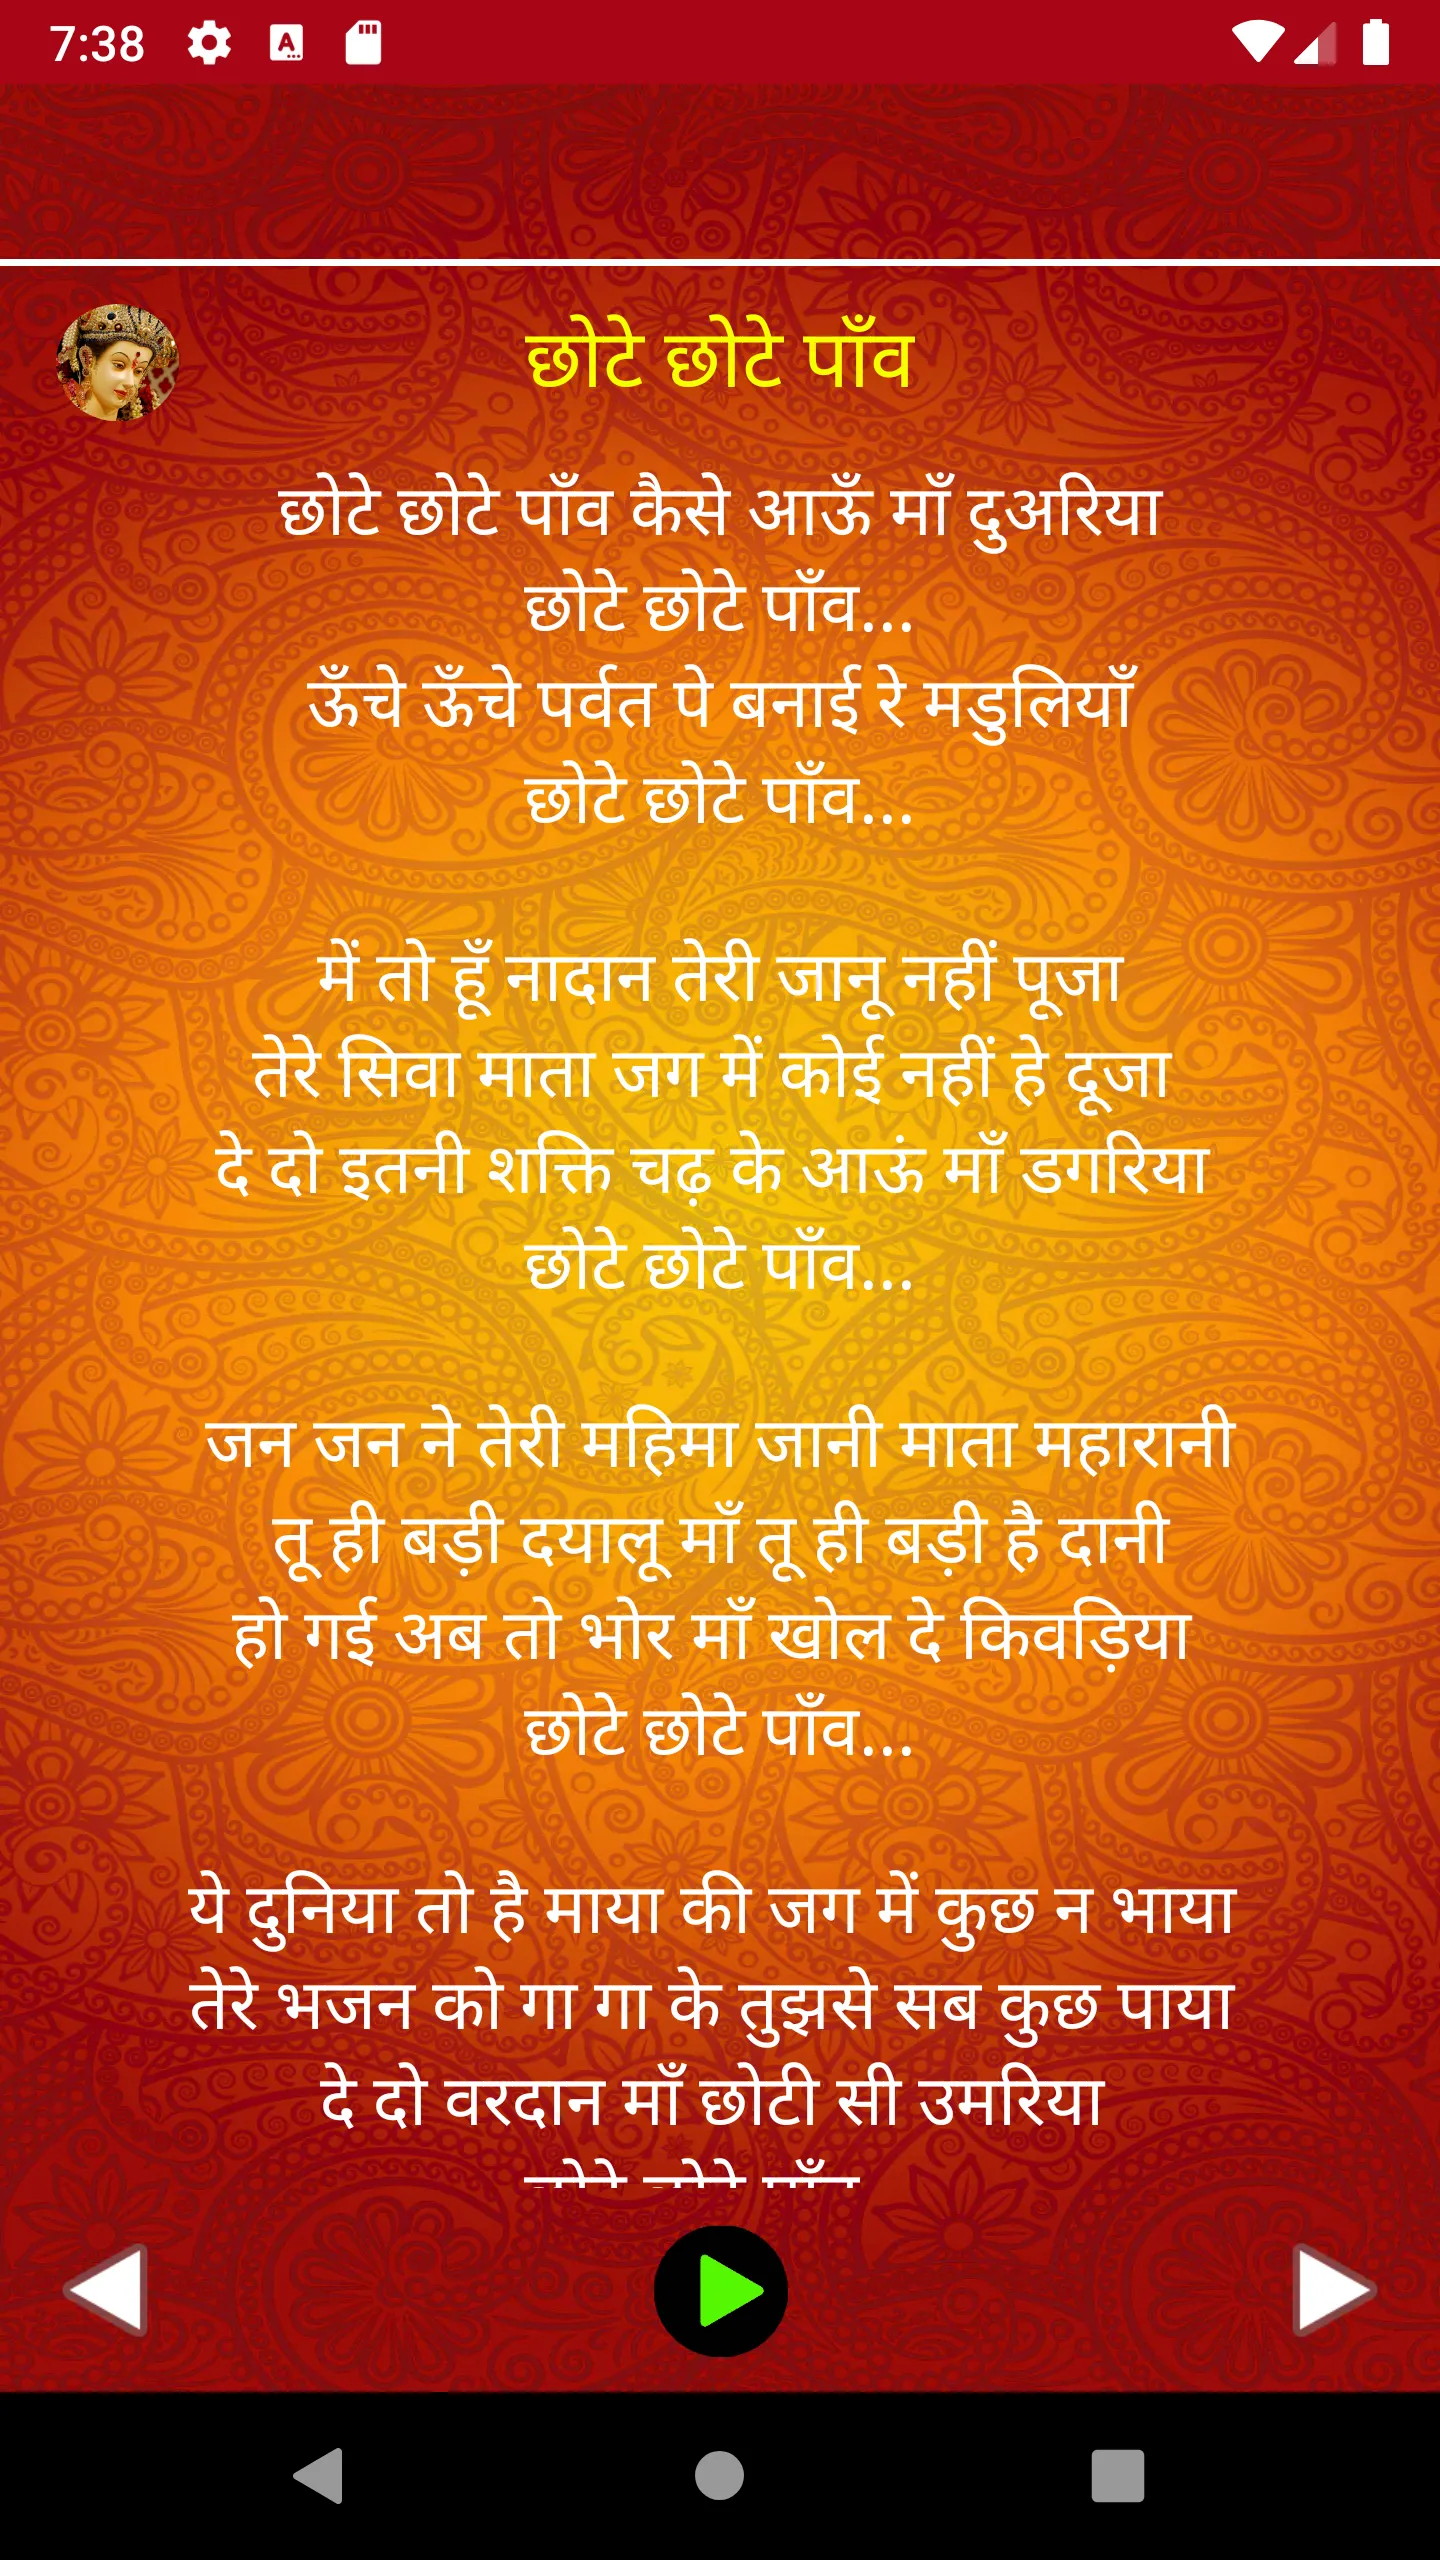 7:38
छोटे छोटे पाँव
छोटे छोटे पाँव कैसे आऊँ माँ दुअरिया
छोटे छोटे पाँव...
ऊँचे ऊँचे पर्वत पे बनाई रे मडुलियाँ
छोटे छोटे पाँव...
में तो हूँ नादान तेरी जानू नहीं पूजा
तेरे सिवा माता जग में कोई नहीं हे दूजा
दे दो इतनी शक्ति चढ़ के आऊं माँ डगरिया
छोटे छोटे पाँव...
जन जन ने तेरी महिमा जानी माता महारानी
तू ही बड़ी दयालू माँ तू ही बड़ी है दानी
हो गई अब तो भोर माँ खोल दे किवड़िया
छोटे छोटे पाँव...
ये दुनिया तो है माया की जग में कुछ न भाया
तेरे भजन को गा गा के तुझसे सब कुछ पाया
दे दो वरदान माँ छोटी सी उमरिया